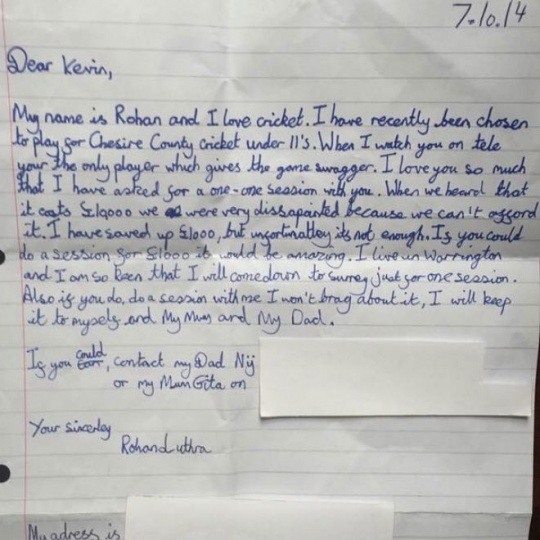 7.10.14
Dear Kevin,
My name is Rohan and I love cricket. I have recently been chosen
to play for Chesire County cricket under 11's. When I watch you on tele
your the only player which gives the game swagger. I love you so much
that I have asked for a one-one session with you. When we heard that
it costs £12,000 we were very dissapointed because we can't afford
it. I have saved up £1000, but unfortinatley its not enough. If you could
do a session for £1000 it would be amazing. I live in Warrington
and I am so keen that I will come down to surrey just for one session.
Also if you do, do a session with me I won't brag about it, I will keep
it to myself and My Mum and My Dad.
If you could, contact my Dad Nij
or my Mum Gita on
Your sincerley
Rohan Luthra
My adress is